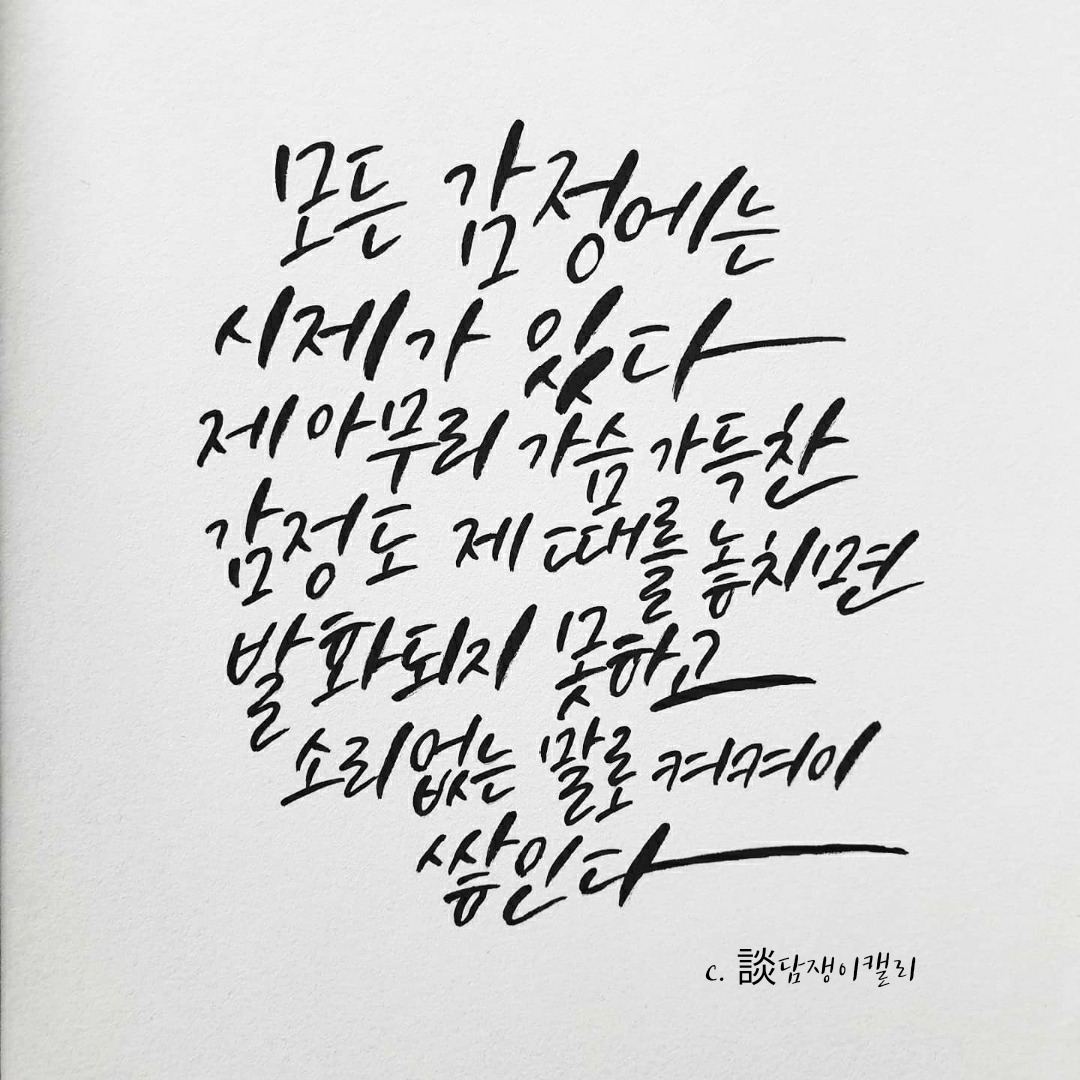 모든 감정에는
시제가 있다
제아무리 가슴 가득찬
감정도 제 때를 놓치면
발화되지 못하고
소리없는 말로 켜켜이
쌓인다
c. 談담쟁이캘리